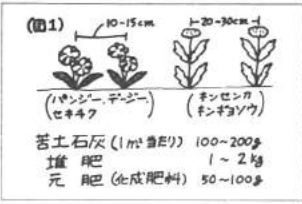 (図1)
10-15cm
20-30cm
(パンジー、デージー、セキチク)
(キンセンカ キンギョソウ)
苦土石灰(1m²当たり) 100~200g
堆肥 1~2kg
元肥(化成肥料) 50~100g